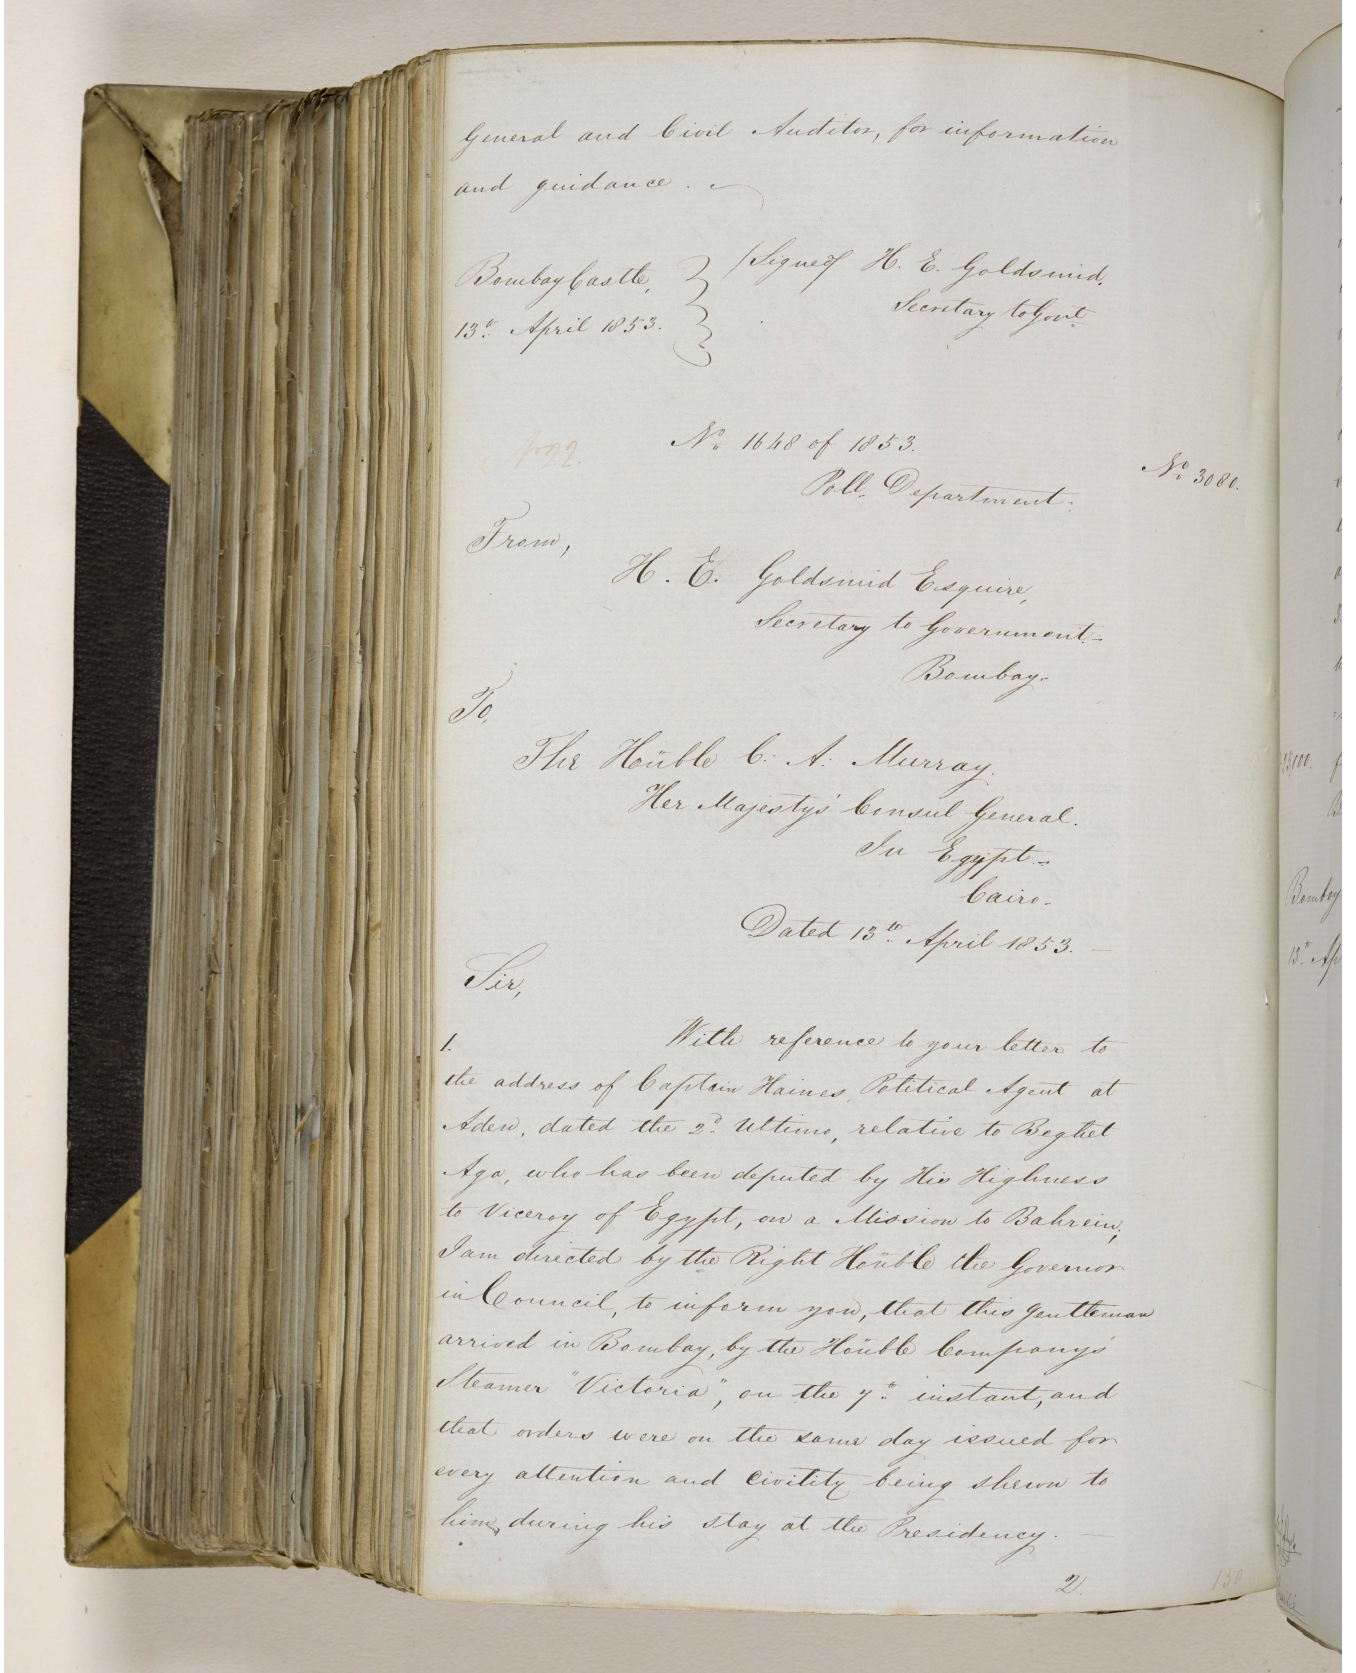 General and Civil Auditor, for information
and guidance.
Bombay Castle,
13th. April 1853.
(Signed) H. E. Goldsmid,
Secretary to Govt.
No. 1648 of 1853.
Poll. Department.
No. 3080.
From,
H. E. Goldsmid Esquire,
Secretary to Government.
Bombay.
To,
The Honble C. A. Murray.
Her Majesty's Consul General.
In Egypt.
Cairo.
Dated 13th. April 1853.
Sir,
1. With reference to your letter to
the address of Captain Haines, Political Agent at
Aden, dated the 2d. Ultimo, relative to Beghet
Aga, who has been deputed by His Highness
to Viceroy of Egypt, on a Mission to Bahrein;
I am directed by the Right Honble the Governor
in Council, to inform you, that this gentleman
arrived in Bombay, by the Honble Company's
Steamer "Victoria", on the 7th. instant, and
that orders were on the same day issued for
every attention and civility being shewn to
him, during his stay at the Presidency.
2.
130
Bombay
13th. Ap